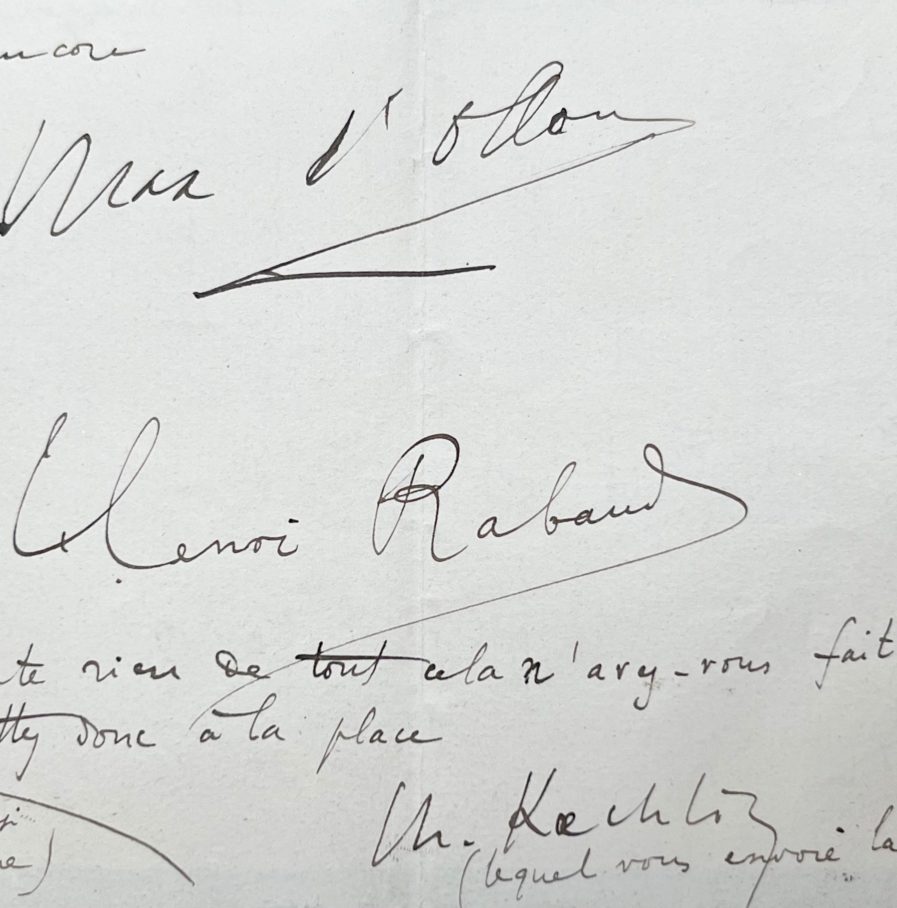 encore
Max d'Ollone
Henri Rabaud
rien de tout cela n'avez-vous fait
donc à la place
Ch. Kœchlin
(lequel vous envoie la